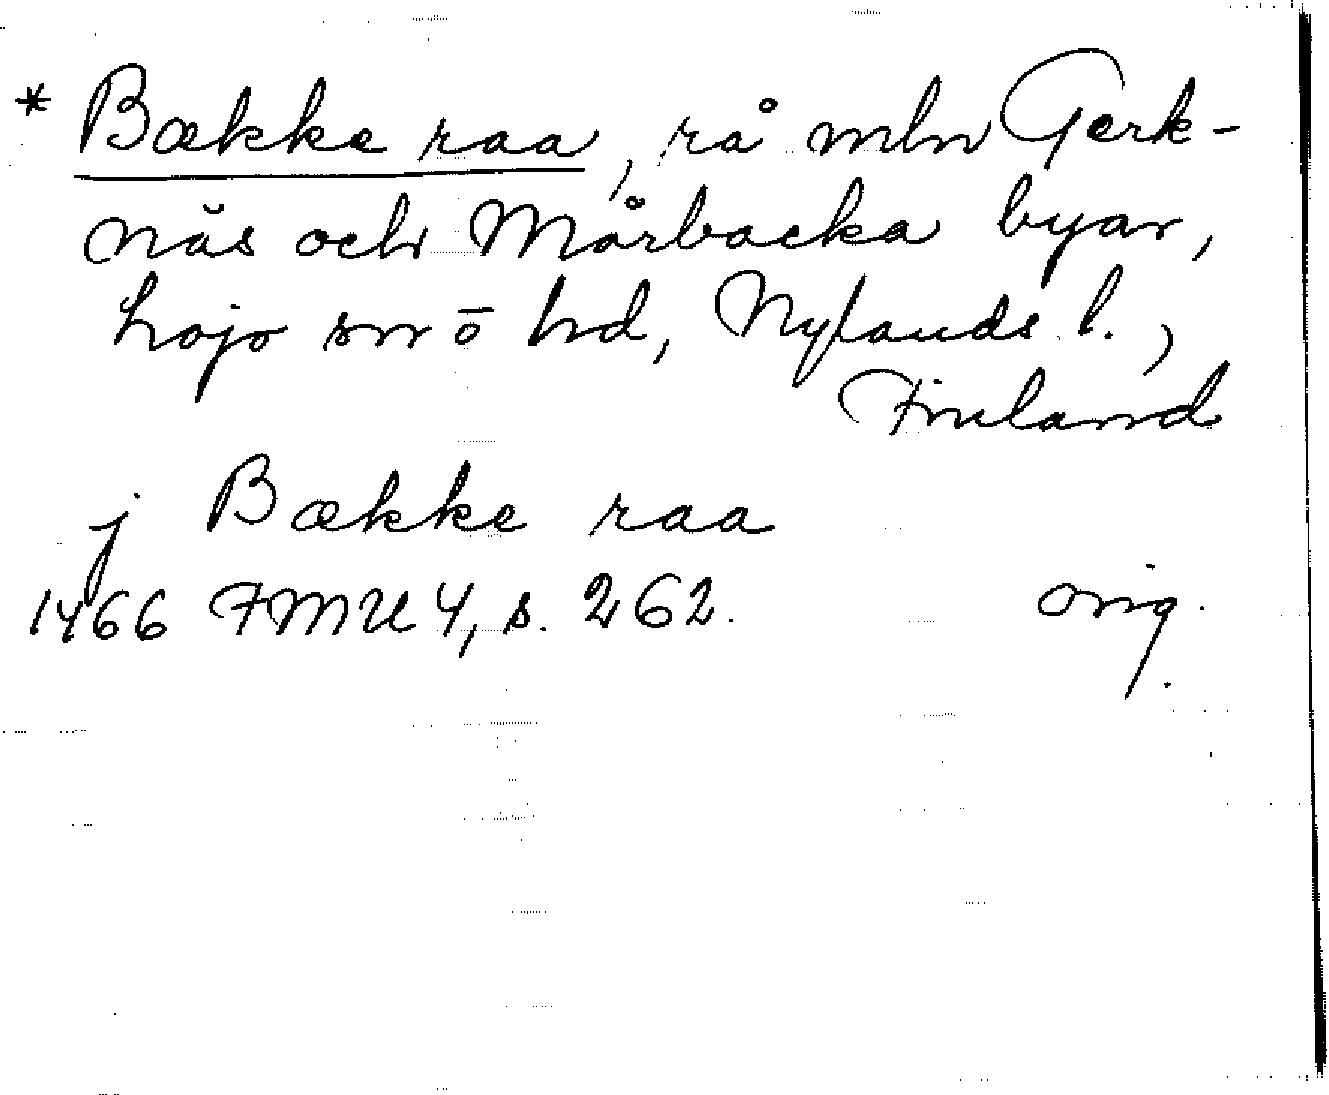 * Bække raa, rå mln Gerk-
näs och Mårbacka byar,
Lojo sn ō hd, Nylands l.,
Finland
j Bække raa
1466 FMU 4, s. 262. orig.